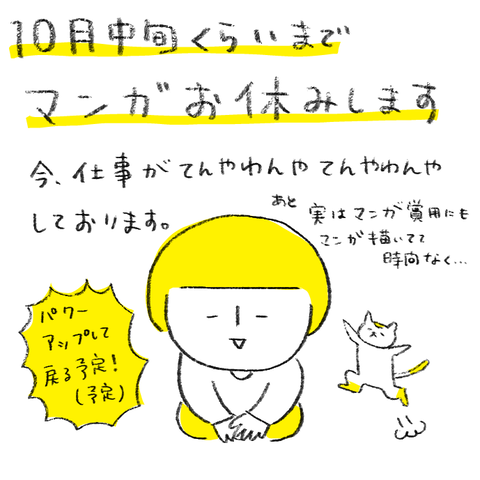 10月中旬くらいまで
マンガお休みします
今、仕事がてんやわんやてんやわんや
しております。
あと 実はマンガ賞用にも
マンガ描いてて
時間なく…
パワー
アップして
戻る予定!
(予定)